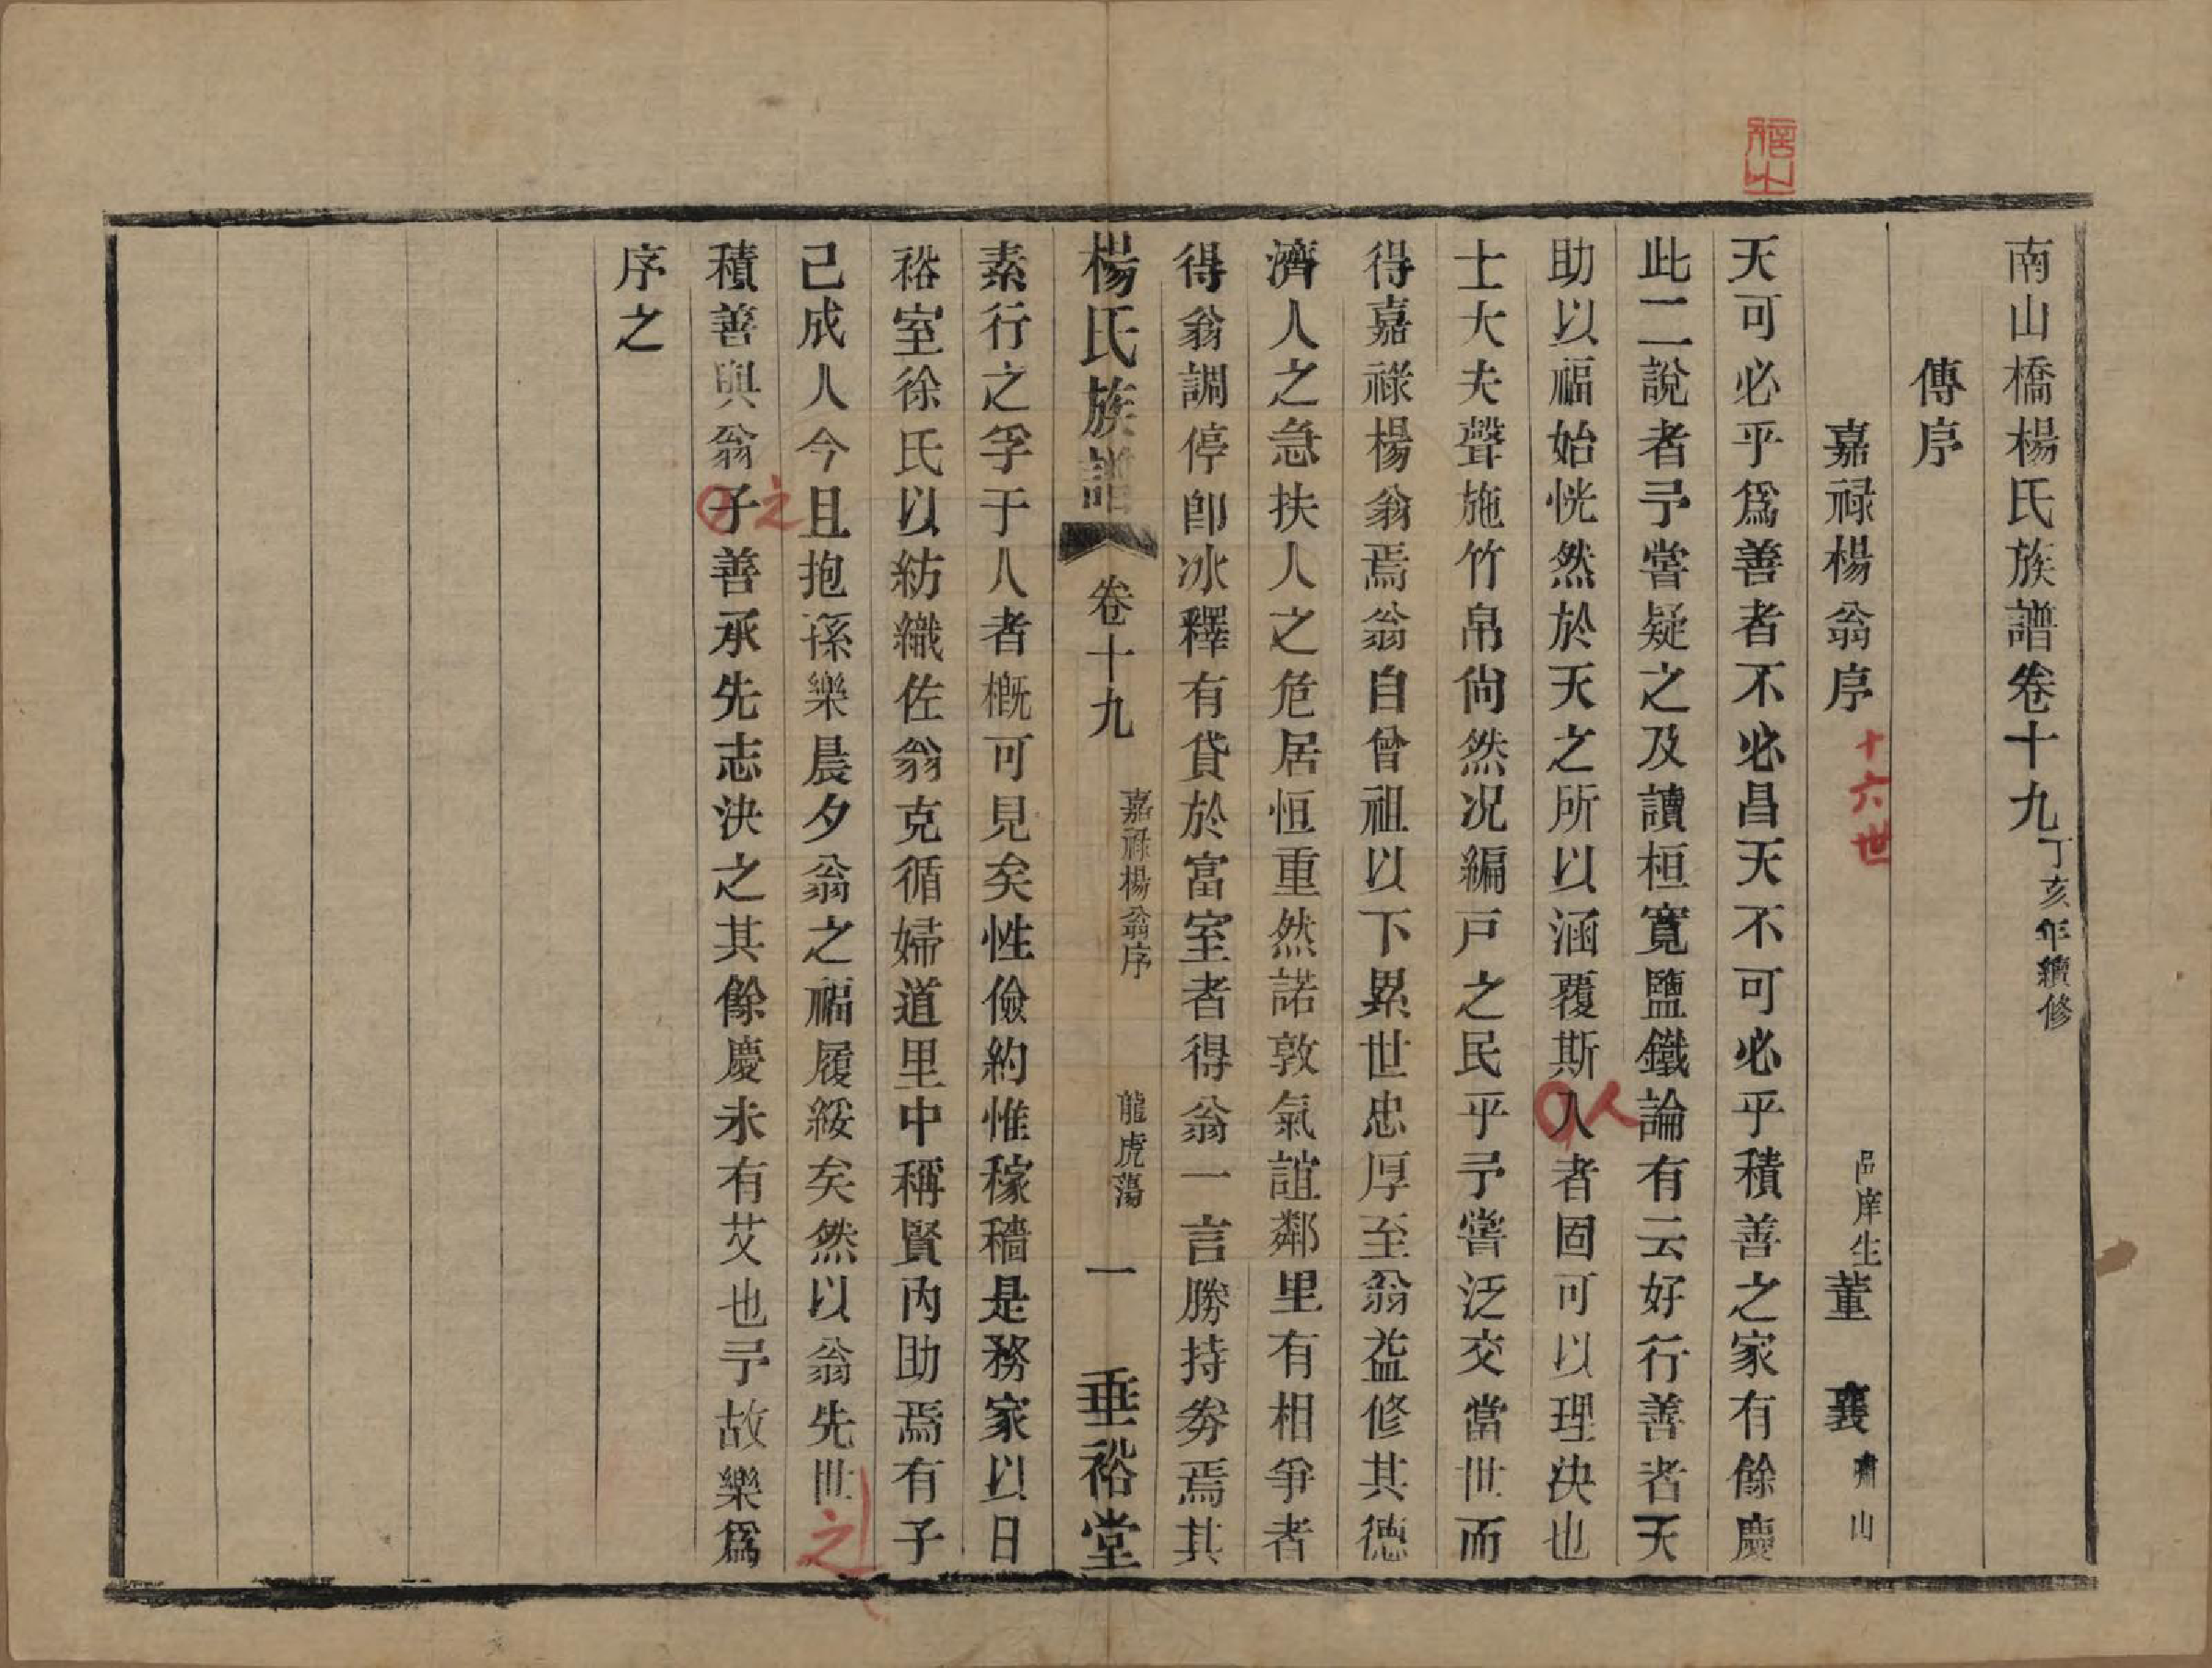 南山橋楊氏族譜卷十九丁亥年續修
傳序
嘉祿楊翁序 十六世 邑庠生董襄肅山
天可必乎爲善者不必昌天不可必乎積善之家有餘慶
此二說者予嘗疑之及讀桓寬鹽鐵論有云好行善者天
助以福始恍然於天之所以涵覆斯入者固可以理決也
人
士大夫聲施竹帛尙然况編戸之民乎予嘗泛交當世而
得嘉祿楊翁焉翁自曾祖以下累世忠厚至翁益修其德
濟人之急扶人之危居恒重然諾敦氣誼鄰里有相爭者
得翁調停卽冰釋有貸於富室者得翁一言勝持券焉其
楊氏族譜 卷十九 嘉祿楊翁序 龍虎蕩 一 垂裕堂
素行之孚于人者槪可見矣性儉約惟稼穡是務家以日
裕室徐氏以紡織佐翁克循婦道里中稱賢內助焉有子
己成人今且抱孫樂晨夕翁之福履綏矣然以翁先世之
積善與翁子善承先志決之其餘慶未有艾也予故樂爲
之
序之